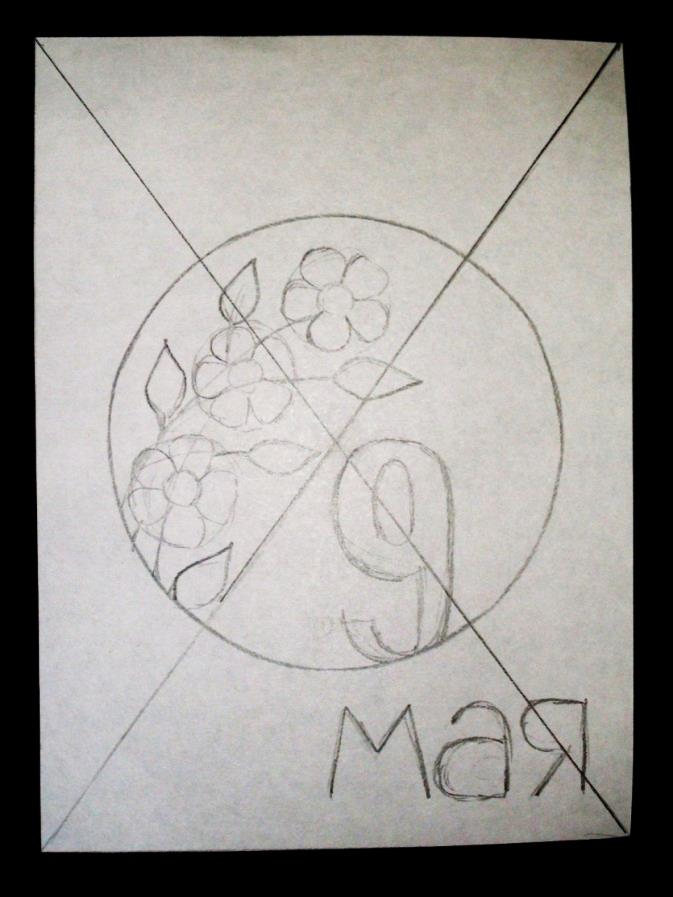 9
мая